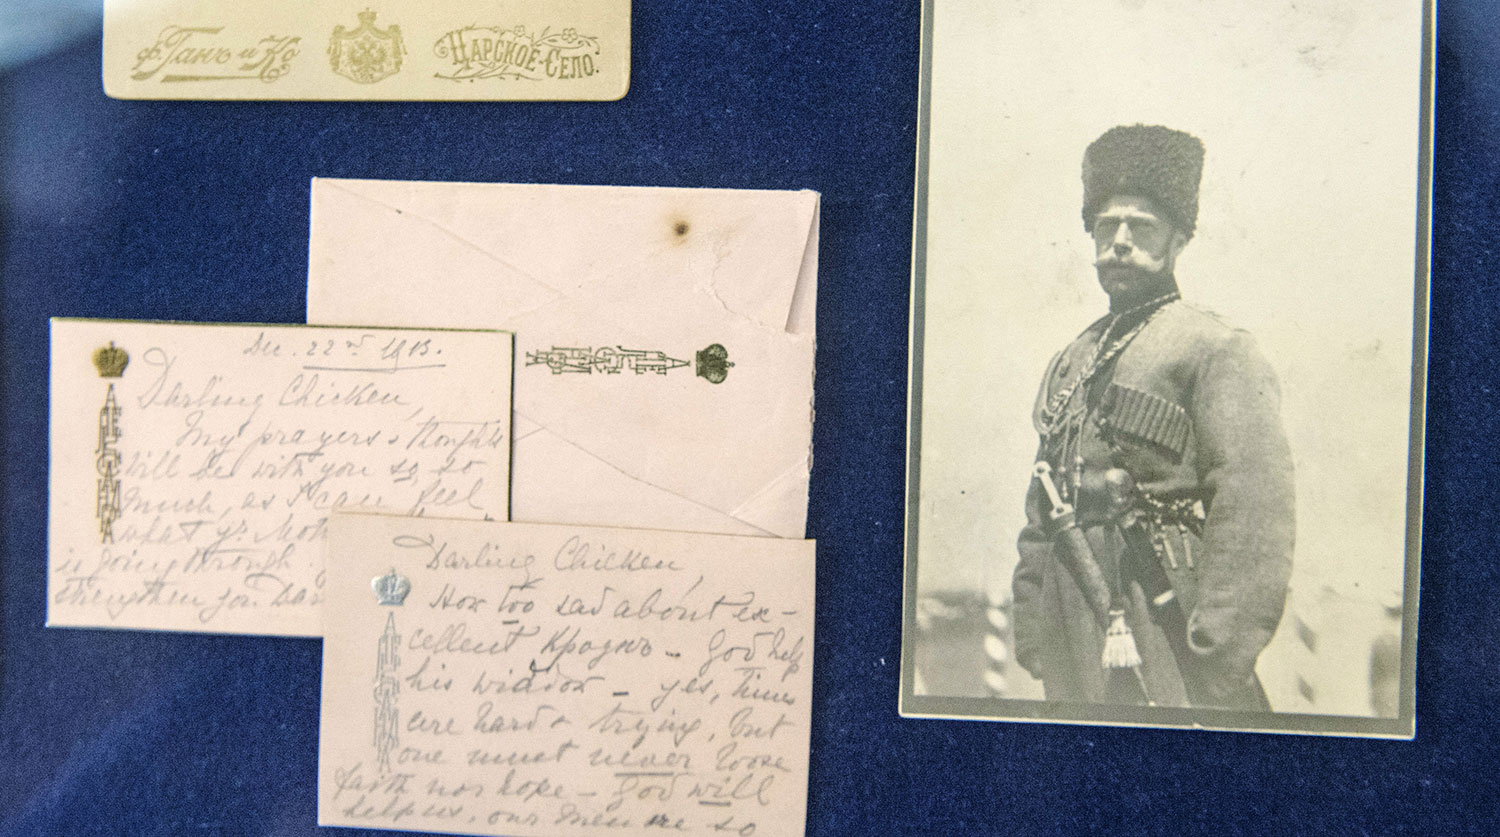 Ф. Ганъ и Ко
ЦАРСКОЕ-СЕЛО.
Dec. 22nd 1913.
Darling Chicken,
My prayers & thoughts
will be with you so, so
much, as I can feel
what yr. Moth
is going through
strengthen you. Dar
Darling Chicken,
How too sad about ex-
cellent – God help
his widow – yes, times
are hard & trying, but
one must never loose
faith nor hope – God will
help us, our men are so